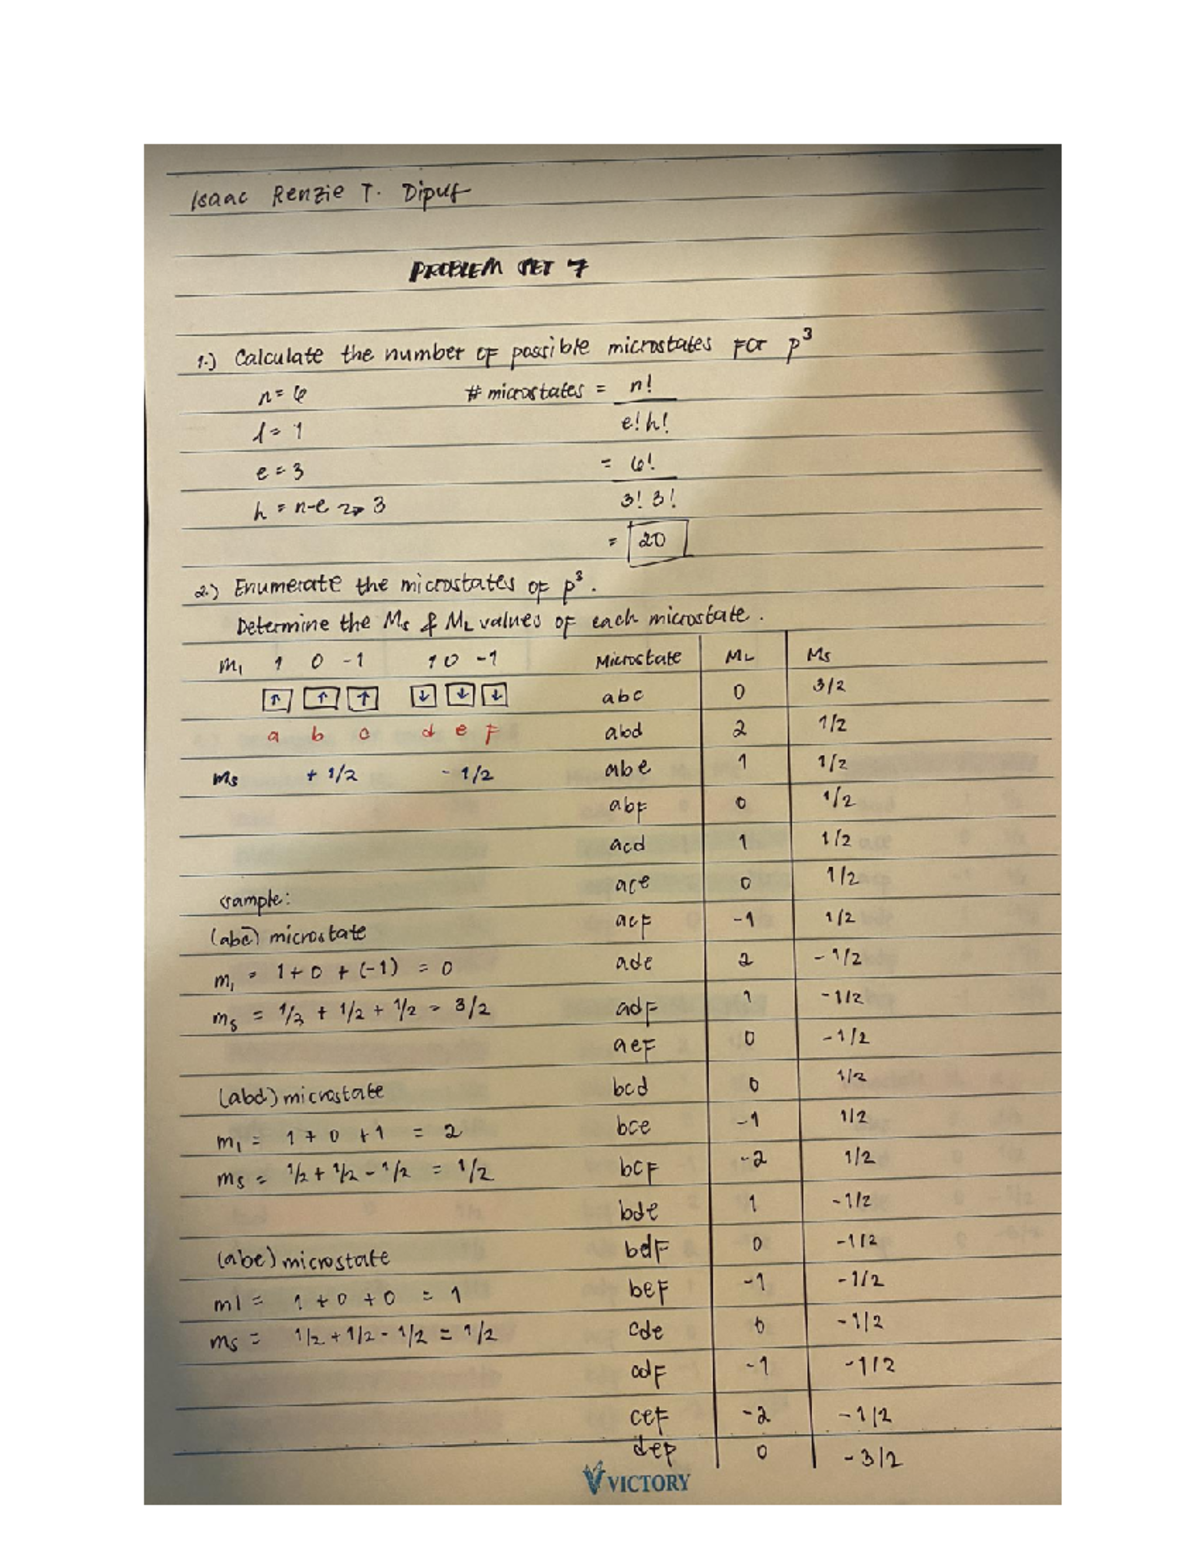 Isaac Renzie T.
PROBLEM SET 7
1.) Calculate the number of possible microstates for p³
n = 6 # microstates = n!
l = 1 e! h!
e = 3 = 6!
h = n-e → 3 3! 3!
= 20
2.) Enumerate the microstates of p³.
Determine the Ms & ML values of each microstate.
ml 1 0 -1 1 0 -1 Microstate ML Ms
↑ ↑ ↑ ↓ ↓ ↓ abc 0 3/2
a b c d e f abd 2 1/2
ms + 1/2 - 1/2 abe 1 1/2
abf 0 1/2
acd 1 1/2
sample: ace 0 1/2
(abc) microstate acf -1 1/2
ml = 1 + 0 + (-1) = 0 ade 2 -1/2
ms = 1/2 + 1/2 + 1/2 = 3/2 adf 1 -1/2
aef 0 -1/2
(abd) microstate bcd 0 1/2
ml = 1 + 0 + 1 = 2 bce -1 1/2
ms = 1/2 + 1/2 - 1/2 = 1/2 bcf -2 1/2
bde 1 -1/2
(abe) microstate bdf 0 -1/2
ml = 1 + 0 + 0 = 1 bef -1 -1/2
ms = 1/2 + 1/2 - 1/2 = 1/2 cde 0 -1/2
cdf -1 -1/2
cef -2 -1/2
def 0 -3/2
VICTORY